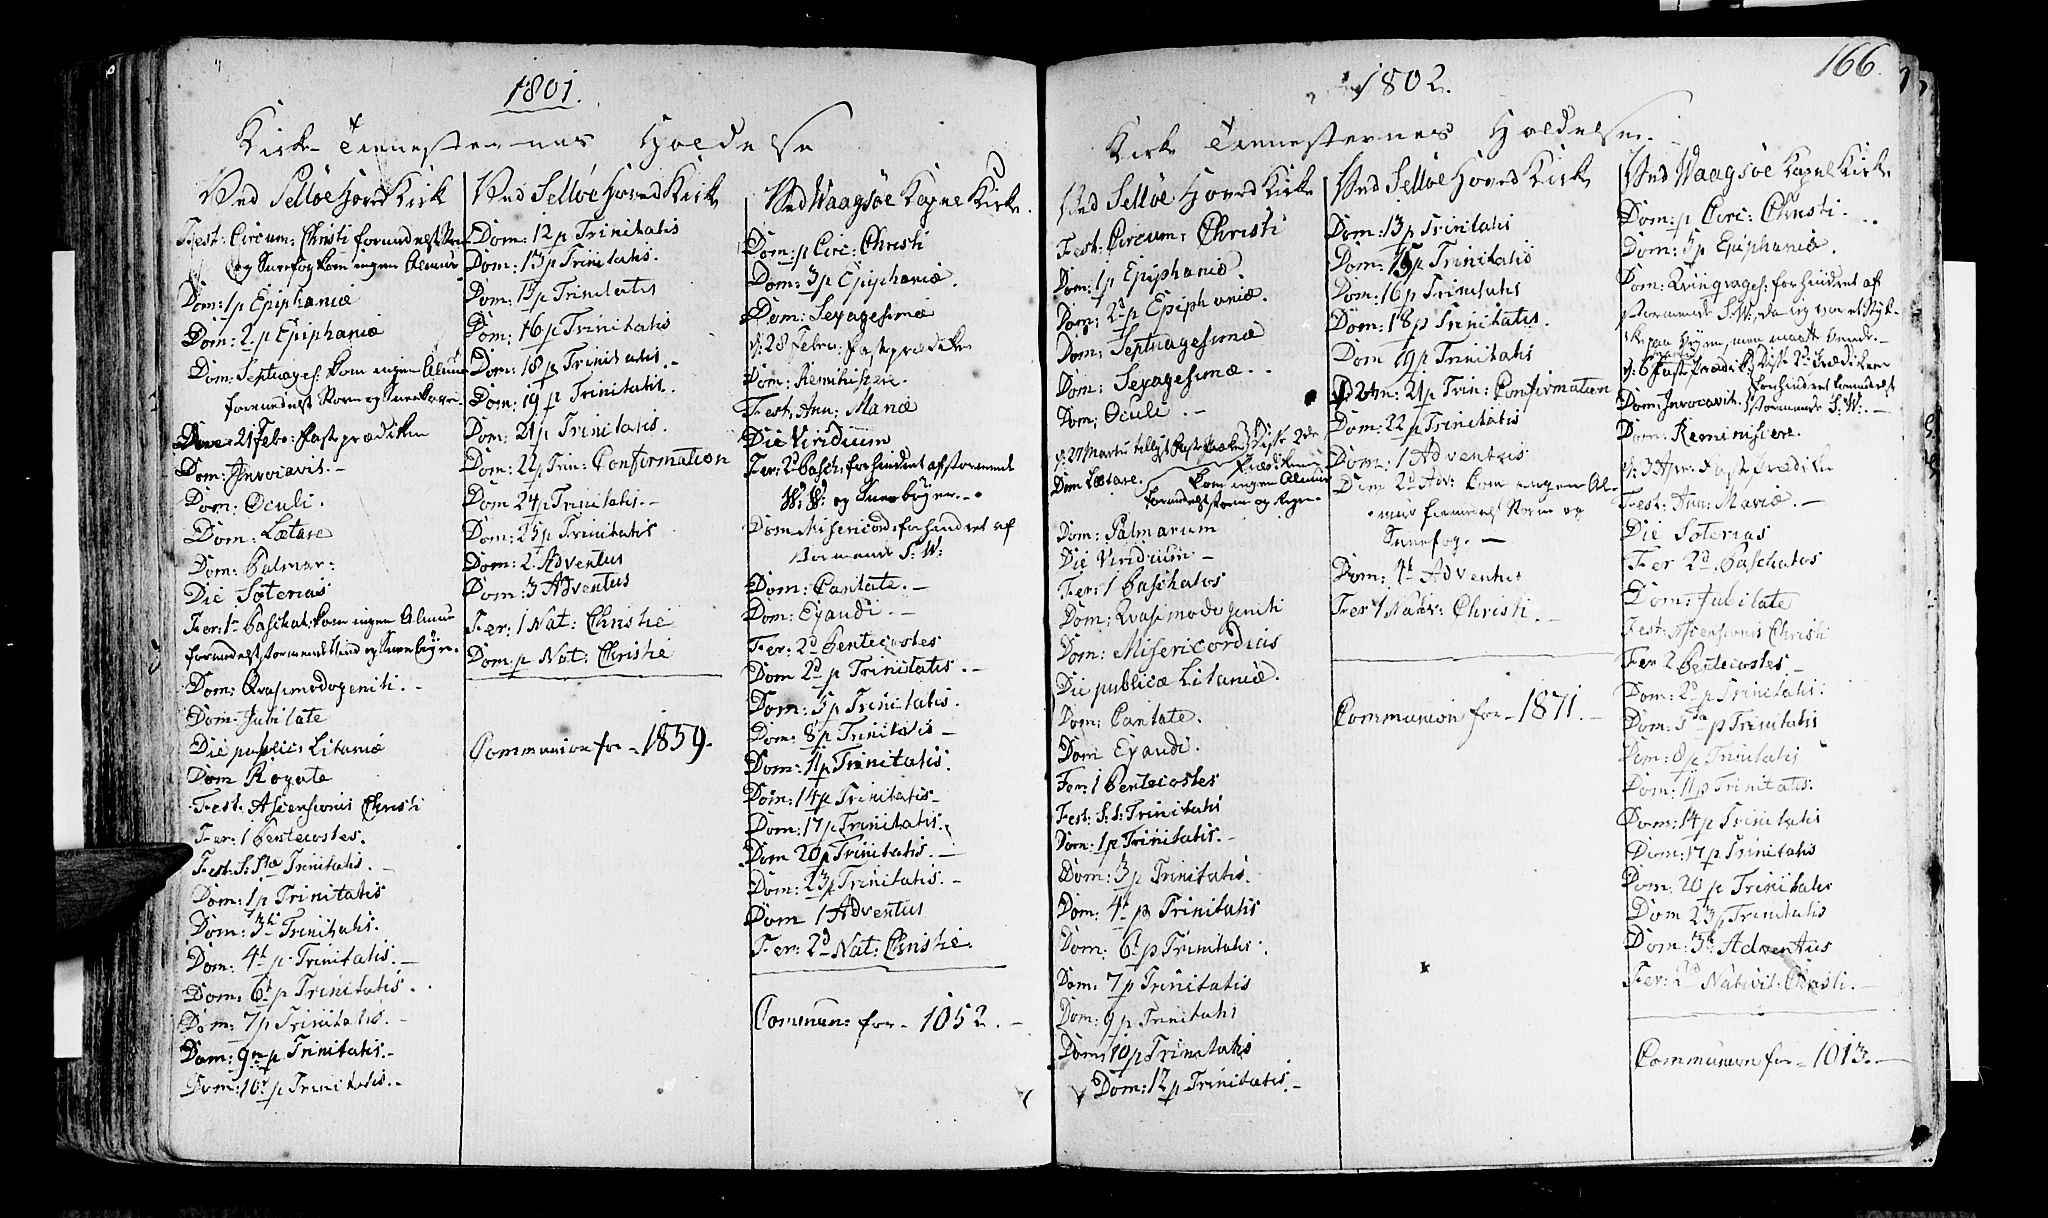 1801.
Kirke Tienesternes Holdelse
Ved Selløe Hoved Kirke
Fest: Circum: Christi formedelst Storm
og Sneefog kom ingen Almue
Dom: 1 p Epiphaniæ
Dom: 2 p Epiphaniæ
Dom: Septuages: kom ingen Almue
formedelst Storm og Sneekave.
21 Febr: Fasteprædiken
Dom: Invocavit. –
Dom: Oculi.
Dom: Lætare
Dom: Palmar:
Die Soterias
Fer: 1 Paschat: kom ingen Almue
formedelst stormende Vind og Snee Byger.
Dom: Qvasimodogeniti. –
Dom: Jubilate
Die public: Litaniæ
Dom Rogate
Fest: Ascensionis Christi
Fer: 1 Pentecostes.
Fest: S: Stæ Trinitatis. –
Dom: 1 p Trinitatis
Dom: 3 Trinitatis.
Dom: 4 p Trinitatis. –
Dom: 6 p Trinitatis.
Dom: 7 p Trinitatis. –
Dom: 9 p Trinitatis. –
Dom: 10 p Trinitatis. –
Ved Selløe Hoved Kirke
Dom: 12 p Trinitatis
Dom: 13 p Trinitatis.
Dom: 15 p Trinitatis
Dom: 16 p Trinitatis
Dom: 18 p Trinitatis. –
Dom: 19 p Trinitatis.
Dom: 21 p Trinitatis.
Dom: 22 p Trin: Confirmation
Dom 24 p Trinitatis. –
Dom: 25 p Trinitatis
Dom: 2 Adventus
Dom: 3 Adventus
Fer: 1 Nat: Christie
Dom: p Nat: Christie
Communion for – 1859.
Ved Waagsøe Kapel Kirke.
Dom: p Circ: Christi
Dom: 3 p Epiphaniæ.
Dom: Sexagesimæ
28 Febr: Fasteprædiken
Dom: Reminiscere.
Fest: Ann: Mariæ
Die Viridium
Fer: 2d Pasch: forhindret af stormende
W: W: og Sneebyger. –
Dom: Misericord: forhindret af
stormende S: W:
Dom: Cantate. –
Dom: Exaudi. –
Fer: 2d Pentecostes
Dom 2d p Trinitatis. –
Dom: 5 p Trinitatis.
Dom: 8 p Trinitatis –
Dom: 11 p Trinitatis.
Dom: 14 p Trinitatis –
Dom: 17 p Trinitatis.
Dom 20 p Trinitatis. –
Dom: 23 p Trinitatis. –
Dom 1 Adventus
Fer: 2d Nat: Christie.
Commun: for – 1052. –
166.
1802.
Kirke Tienesternes Holdelse.
Ved Selløe Hoved Kirke
Fest: Circum: Christi
Dom: 1 p Epiphaniæ.
Dom: 2d p Epiphaniæ.
Dom: Septuagesimæ
Dom: Sexagesimæ. –
Dom: Oculi. –
27 Martii
Dom Lætare. kom ingen Almue
formedelst storm og Regn. –
Dom: Palmarum
Die Viridium –
Fer: 1 Paschatos
Dom: Qvasimodogeniti
Dom: Misericordias
Die publicæ Litaniæ.
Dom: Cantate.
Dom Exaudi.
Fer: 1 Pentecostes
Fest: S: S: Trinitatis
Dom: 1 p Trinitatis. –
Dom: 3 p Trinitatis.
Dom: 4 p Trinitatis
Dom: 6 p Trinitatis.
Dom: 7 p Trinitatis
Dom: 9 p Trinitatis
Dom: 10 p Trinitatis
Dom: 12 p Trinitatis. –
Ved Selløe Hoved Kirke
Dom: 13 p Trinitatis
Dom: 15 p Trinitatis
Dom: 16 p Trinitatis
Dom: 18 p Trinitatis.
Dom 19 p Trinitatis
Dom: 21 p Trin: Confirmation
Dom: 22 p Trinitatis
Dom: 1 Adventus
Dom 2d Adv: kom ingen Al-
mue formedelst Storm og
Sneefog. –
Dom: 4 Adventus
Fer 1 Nativ: Christi. –
Communion for – 1871. –
Ved Waagsøe Kapel Kirke
Dom: p Circ: Christi.
Dom: 3 p Epiphaniæ.
Dom: Qvinqvages: forhindret af
stormende S. W:, da jeg var et Styk-
ke paa Veyen, men maatte vende. –
Dom: Invocavit: stormende S. W: –
Dom: Reminiscere.
3 Apr: Fasteprædiken
Fest: Ann: Mariæ. –
Die Soterias
Fer 2d Paschatos
Dom: Jubilate
Fest: Ascensionis Christi
Fer 2 Pentecostes –
Dom: 2d p Trinitatis.
Dom: 5 p Trinitatis
Dom: 8 p Trinitatis
Dom: 11 p Trinitatis.
Dom: 14 p Trinitatis
Dom: 17 p Trinitatis
Dom: 20 p Trinitatis
Dom 23 p Trinitatis
Dom: 3 Adventus
Fer: 2d Nativit: Christi. –
Communion for – 1013. –